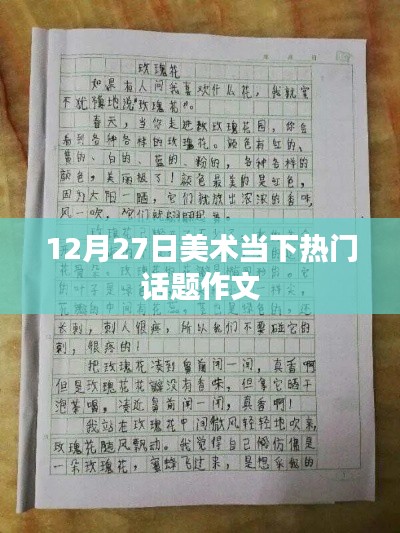 玫瑰花
如果有人问我喜欢什么花，我就
不犹豫地说"玫瑰花"。
春天，当你走进玫瑰花园，你会
看到各种各样的玫瑰花。颜色有红的、
黄的、白的、蓝的、粉的，各种各样的
颜色，美丽极了！颜色最美的是红色，
太阳一晒，它们就放出浓浓的香味
风一吹，它们就
12月27日美术当下热门
话题作文
长刺，刺人很疼，所以我们不要碰它的
刺，很疼的！
把玫瑰花凑到鼻前闻一闻，真香啊
但是玫瑰花花瓣没有香味，但拿它晒干
泡茶喝，凑近鼻前闻一闻，真香啊！
我站在玫瑰花中间微风轻轻地吹来，
玫瑰花随风飘动。我觉得自己仿佛是
一朵玫瑰花，蜜蜂飞过来，是想采我的